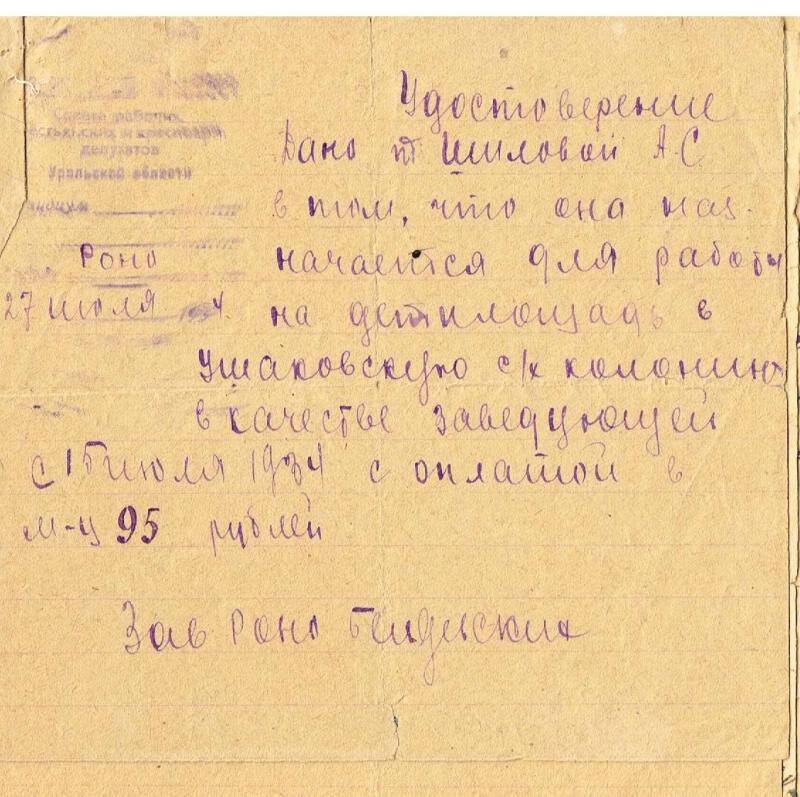 Совета рабочих,
крестьянских и красноарм.
депутатов
Уральской области
РОНО
27 июля
Удостоверение
Дано т. Шиловой А.С.
в том, что она наз-
начается для работы
на детплощадь в
Ушаковскую с/х колонию
в качестве заведующей
с 15 июля 1934 с оплатой в
м-ц 95 рублей
Зав Роно